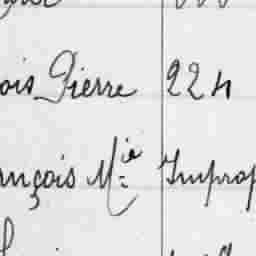 ois Pierre 224
nçois M.ie Improp